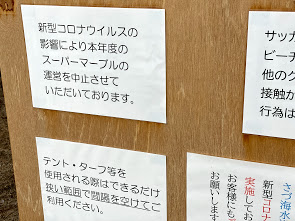 新型コロナウイルスの
影響により本年度の
スーパーマーブルの
運営を中止させて
いただいております。
テント・ターフ等を
使用される際はできるだけ
狭い範囲で間隔を空けてご
利用ください。
サッカ
ビーチ
他のグ
接触か
行為は
さづ海水
新型コロナ
実施してお
お客様にもご
お願いします